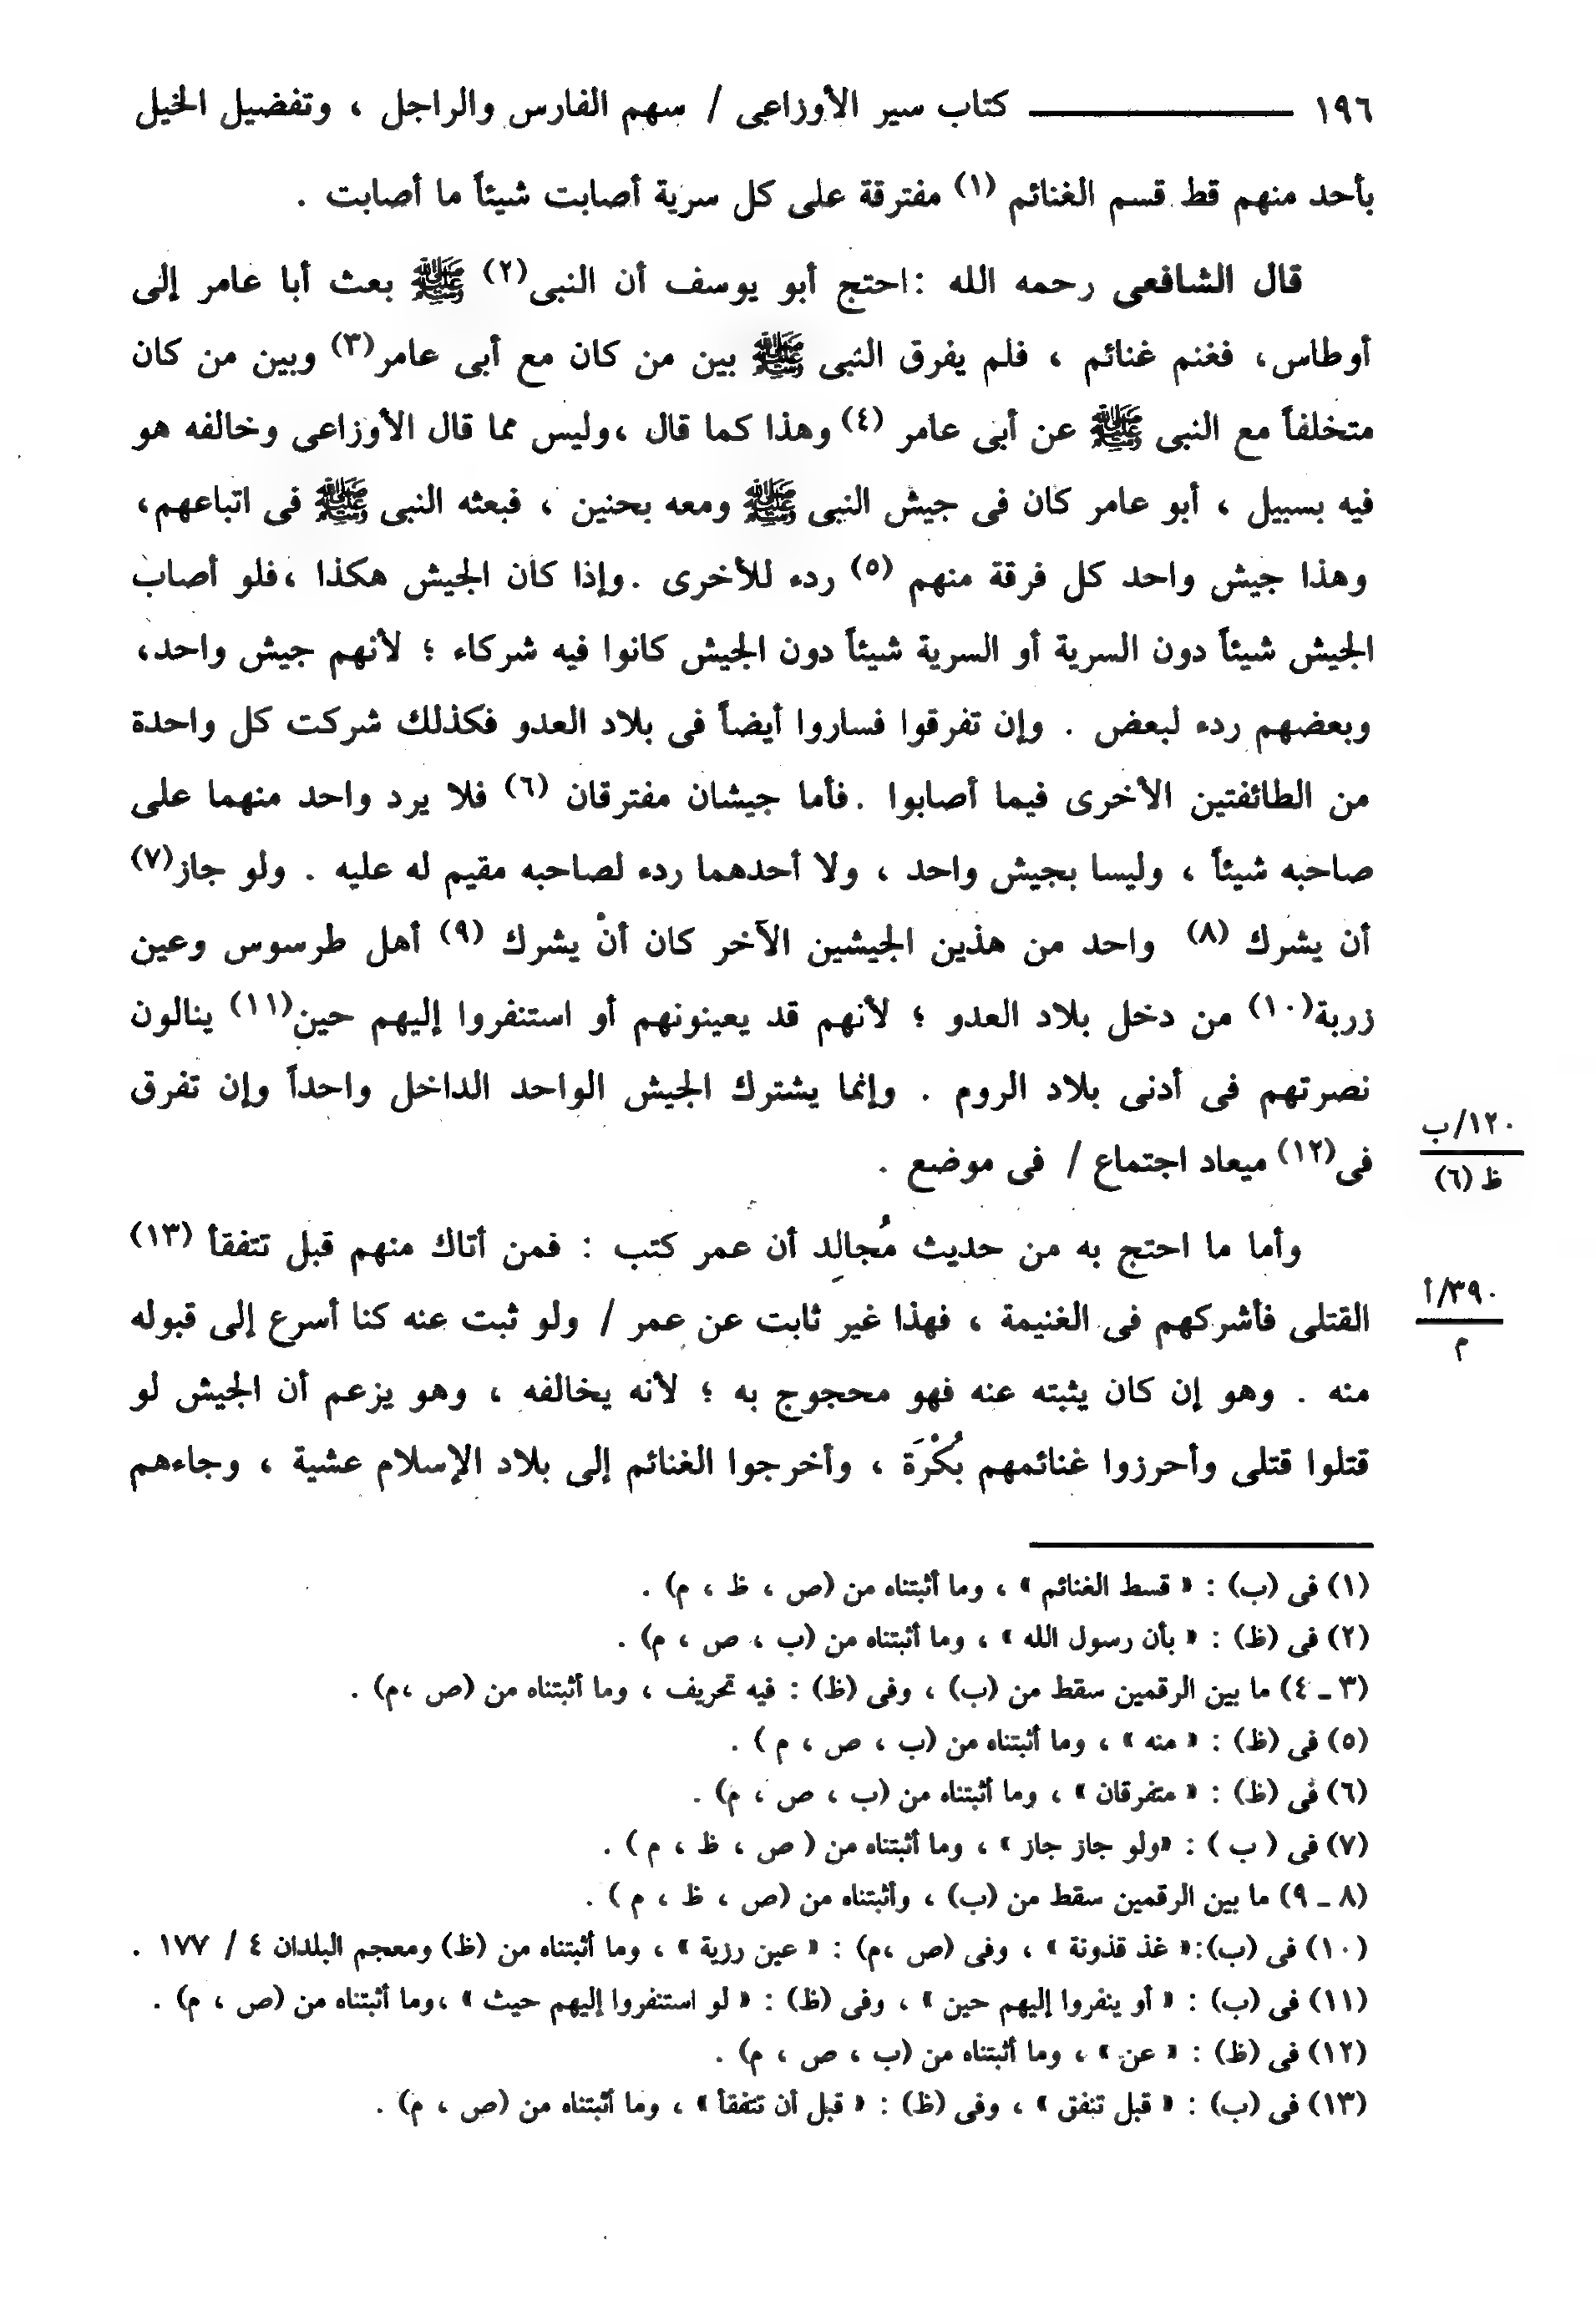 ١٩٦ ـــــــــــــ كتاب سير الأوزاعى / سهم الفارس والراجل ، وتفضيل الخيل
بأحد منهم قط قسم الغنائم (١) مفترقة على كل سرية أصابت شيئاً ما أصابت .
قال الشافعى رحمه الله :احتج أبو يوسف أن النبى(٢) ﷺ بعث أبا عامر إلى
أوطاس، فغنم غنائم ، فلم يفرق النبى ﷺ بين من كان مع أبى عامر(٣) وبين من كان
متخلفاً مع النبى ﷺ عن أبى عامر (٤) وهذا كما قال ،وليس مما قال الأوزاعى وخالفه هو
فيه بسبيل ، أبو عامر كان فى جيش النبى ﷺ ومعه بحنين ، فبعثه النبى ﷺ فى اتباعهم،
وهذا جيش واحد كل فرقة منهم (٥) ردء للأخرى .وإذا كان الجيش هكذا ،فلو أصاب
الجيش شيئاً دون السرية أو السرية شيئاً دون الجيش كانوا فيه شركاء ؛ لأنهم جيش واحد،
وبعضهم ردء لبعض . وإن تفرقوا فساروا أيضاً فى بلاد العدو فكذلك شركت كل واحدة
من الطائفتين الأخرى فيما أصابوا .فأما جيشان مفترقان (٦) فلا يرد واحد منهما على
صاحبه شيئاً ، وليسا بجيش واحد ، ولا أحدهما ردء لصاحبه مقيم له عليه . ولو جاز(٧)
أن يشرك (٨) واحد من هذين الجيشين الآخر كان أنْ يشرك (٩) أهل طرسوس وعين
زربة(١٠) من دخل بلاد العدو ؛ لأنهم قد يعينونهم أو استنفروا إليهم حين(١١) ينالون
نصرتهم فى أدنى بلاد الروم . وإنما يشترك الجيش الواحد الداخل واحداً وإن تفرق
فى(١٢) ميعاد اجتماع / فى موضع .
١٢٠/ب
ظ (٦)
وأما ما احتج به من حديث مُجالِد أن عمر كتب : فمن أتاك منهم قبل تتفقأ (١٣)
القتلى فأشركهم فى الغنيمة ، فهذا غير ثابت عن عمر / ولو ثبت عنه كنا أسرع إلى قبوله
٣٩٠/أ
م
منه . وهو إن كان يثبته عنه فهو محجوج به ؛ لأنه يخالفه ، وهو يزعم أن الجيش لو
قتلوا قتلى وأحرزوا غنائمهم بُكْرَة ، وأخرجوا الغنائم إلى بلاد الإسلام عشية ، وجاءهم
(١) فى (ب) : « قسط الغنائم » ، وما أثبتناه من (ص ، ظ ، م) .
(٢) فى (ظ) : « بأن رسول الله » ، وما أثبتناه من (ب ، ص ، م) .
(٣ ـ ٤) ما بين الرقمين سقط من (ب) ، وفى (ظ) : فيه تحريف ، وما أثبتناه من (ص ،م) .
(٥) فى (ظ) : « منه » ، وما أثبتناه من (ب ، ص ، م ) .
(٦) فى (ظ) : « متفرقان » ، وما أثبتناه من (ب ، ص ، م) .
(٧) فى ( ب ) : «ولو جاز جاز » ، وما أثبتناه من ( ص ، ظ ، م ) .
(٨ ـ ٩) ما بين الرقمين سقط من (ب) ، وأثبتناه من (ص ، ظ ، م ) .
(١٠) فى (ب):« غذ قذونة » ، وفى (ص ،م) : « عين رزية » ، وما أثبتناه من (ظ) ومعجم البلدان ٤ / ١٧٧ .
(١١) فى (ب) : « أو ينفروا إليهم حين » ، وفى (ظ) : « لو استنفروا إليهم حيث » ،وما أثبتناه من (ص ، م) .
(١٢) فى (ظ) : « عن » ، وما أثبتناه من (ب ، ص ، م) .
(١٣) فى (ب) : « قبل تنفق » ، وفى (ظ) : « قبل أن تتفقأ » ، وما أثبتناه من (ص ، م) .